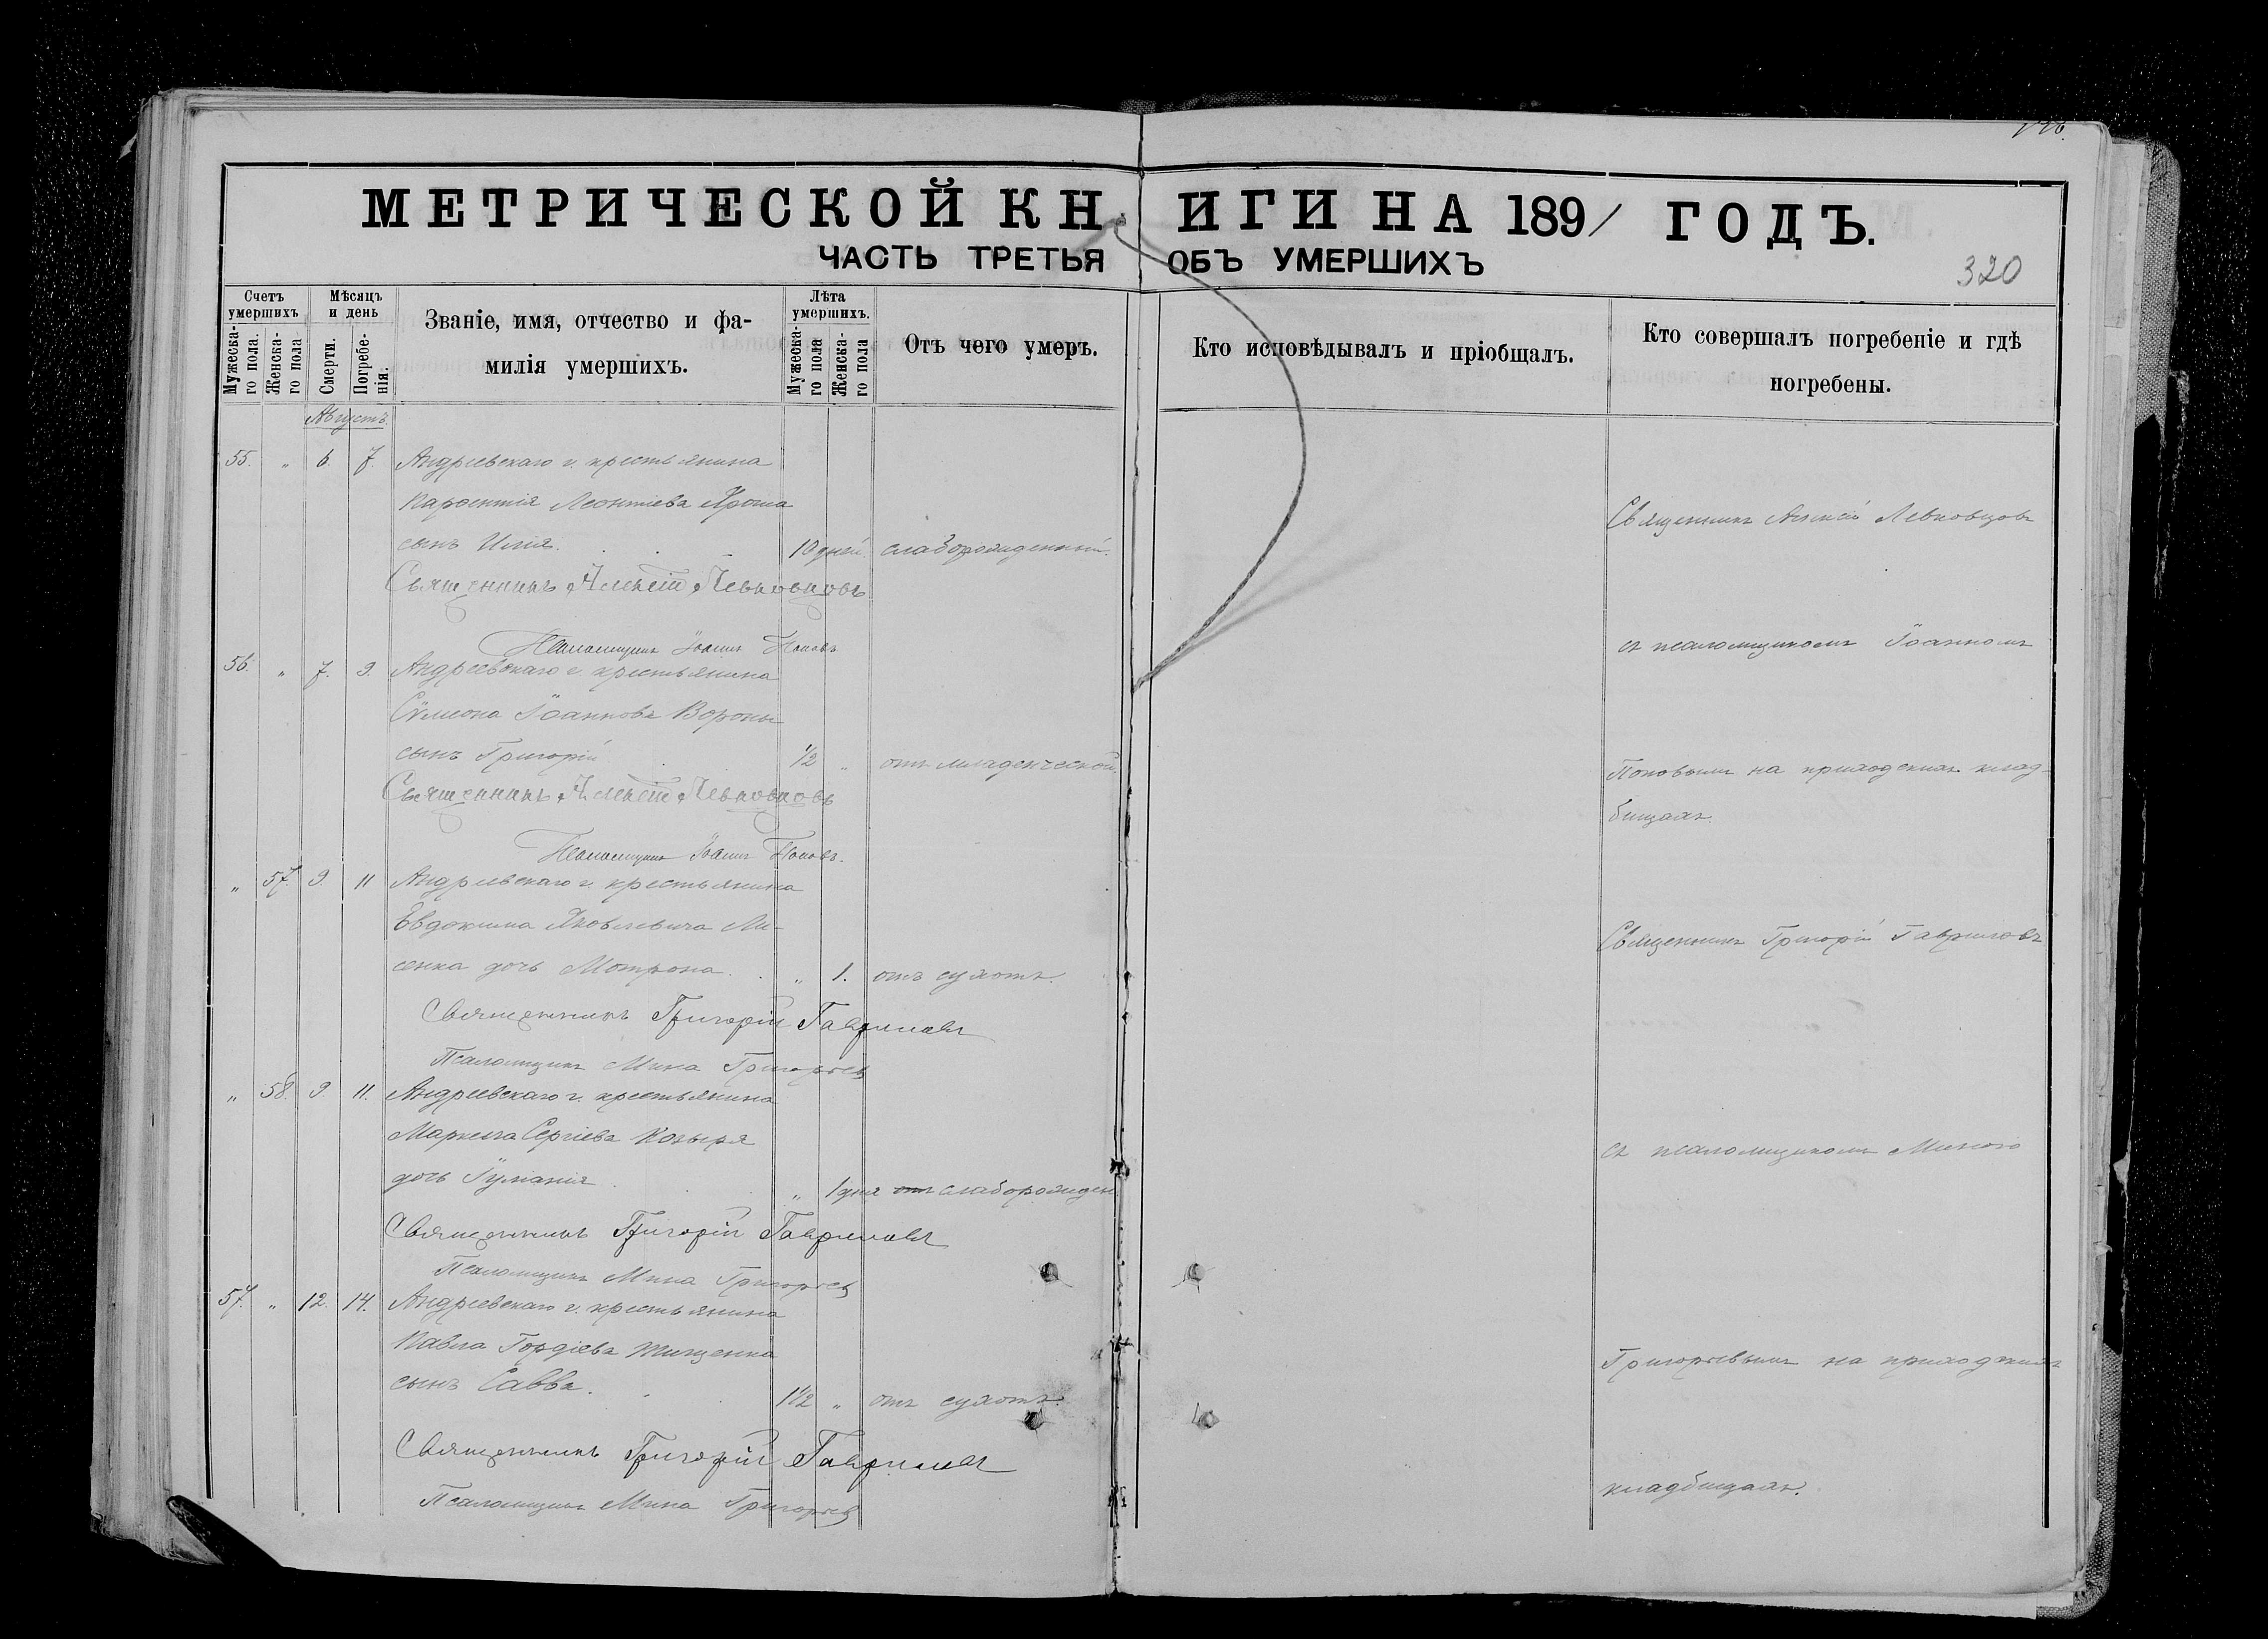 МЕТРИЧЕСКОЙ КНИГИ НА 1891 ГОДЪ.
ЧАСТЬ ТРЕТЬЯ ОБЪ УМЕРШИХЪ
320
Счетъ умершихъ
Мужеска-го пола.
Женска-го пола
Мѣсяцъ и день
Смерти.
Погребе-нія.
Званіе, имя, отчество и фа-
милія умершихъ.
Лѣта умершихъ.
Мужеска-го пола
Женска-го пола
Отъ чего умеръ.
Кто исповѣдывалъ и пріобщалъ.
Кто совершалъ погребеніе и гдѣ
погребены.
Августъ.
55. " 6. 7. Андреевскаго г. крестьянина
Леонтіева
сынъ Илія. 10 дней. слаборожденный.
Священникъ Алексій Левковцовъ
Священникъ Алексій Левковцовъ
Псаломщикъ Іоаннъ Поповъ
съ псаломщикомъ Іоанномъ
56. " 7. 9. Андреевскаго г. крестьянина
Сѵмеона Іоаннова Вороны
сынъ Григорій 1/2 " отъ младенческой.
Поповымъ на приходскихъ клад-
бищахъ.
Священникъ Алексій Левковцовъ
Псаломщикъ Іоаннъ Поповъ.
" 57. 9. 11 Андреевскаго г. крестьянина
Евдокима Яковлевича Ли-
сенка дочь Мотрона. " 1. отъ сухотъ.
Священникъ Григорій Гавриловъ
Священникъ Григорій Гавриловъ
Псаломщикъ Мина Григорьев
" 58. 9. 11. Андреевскаго г. крестьянина
Маркела Сергіева Козыря
съ псаломщикомъ Миною
дочь Іуліанія. " 1 дня отъ слаборожден
Священникъ Григорій Гавриловъ
Псаломщикъ Мина Григорьев
57. " 12. 14. Андреевскаго г. крестьянина
Павла Гордіева Тищенка
Григорьевымъ на приходскихъ
сынъ Савва. 1 1/2 " отъ сухотъ.
Священникъ Григорій Гавриловъ
кладбищахъ.
Псаломщикъ Мина Григорьев